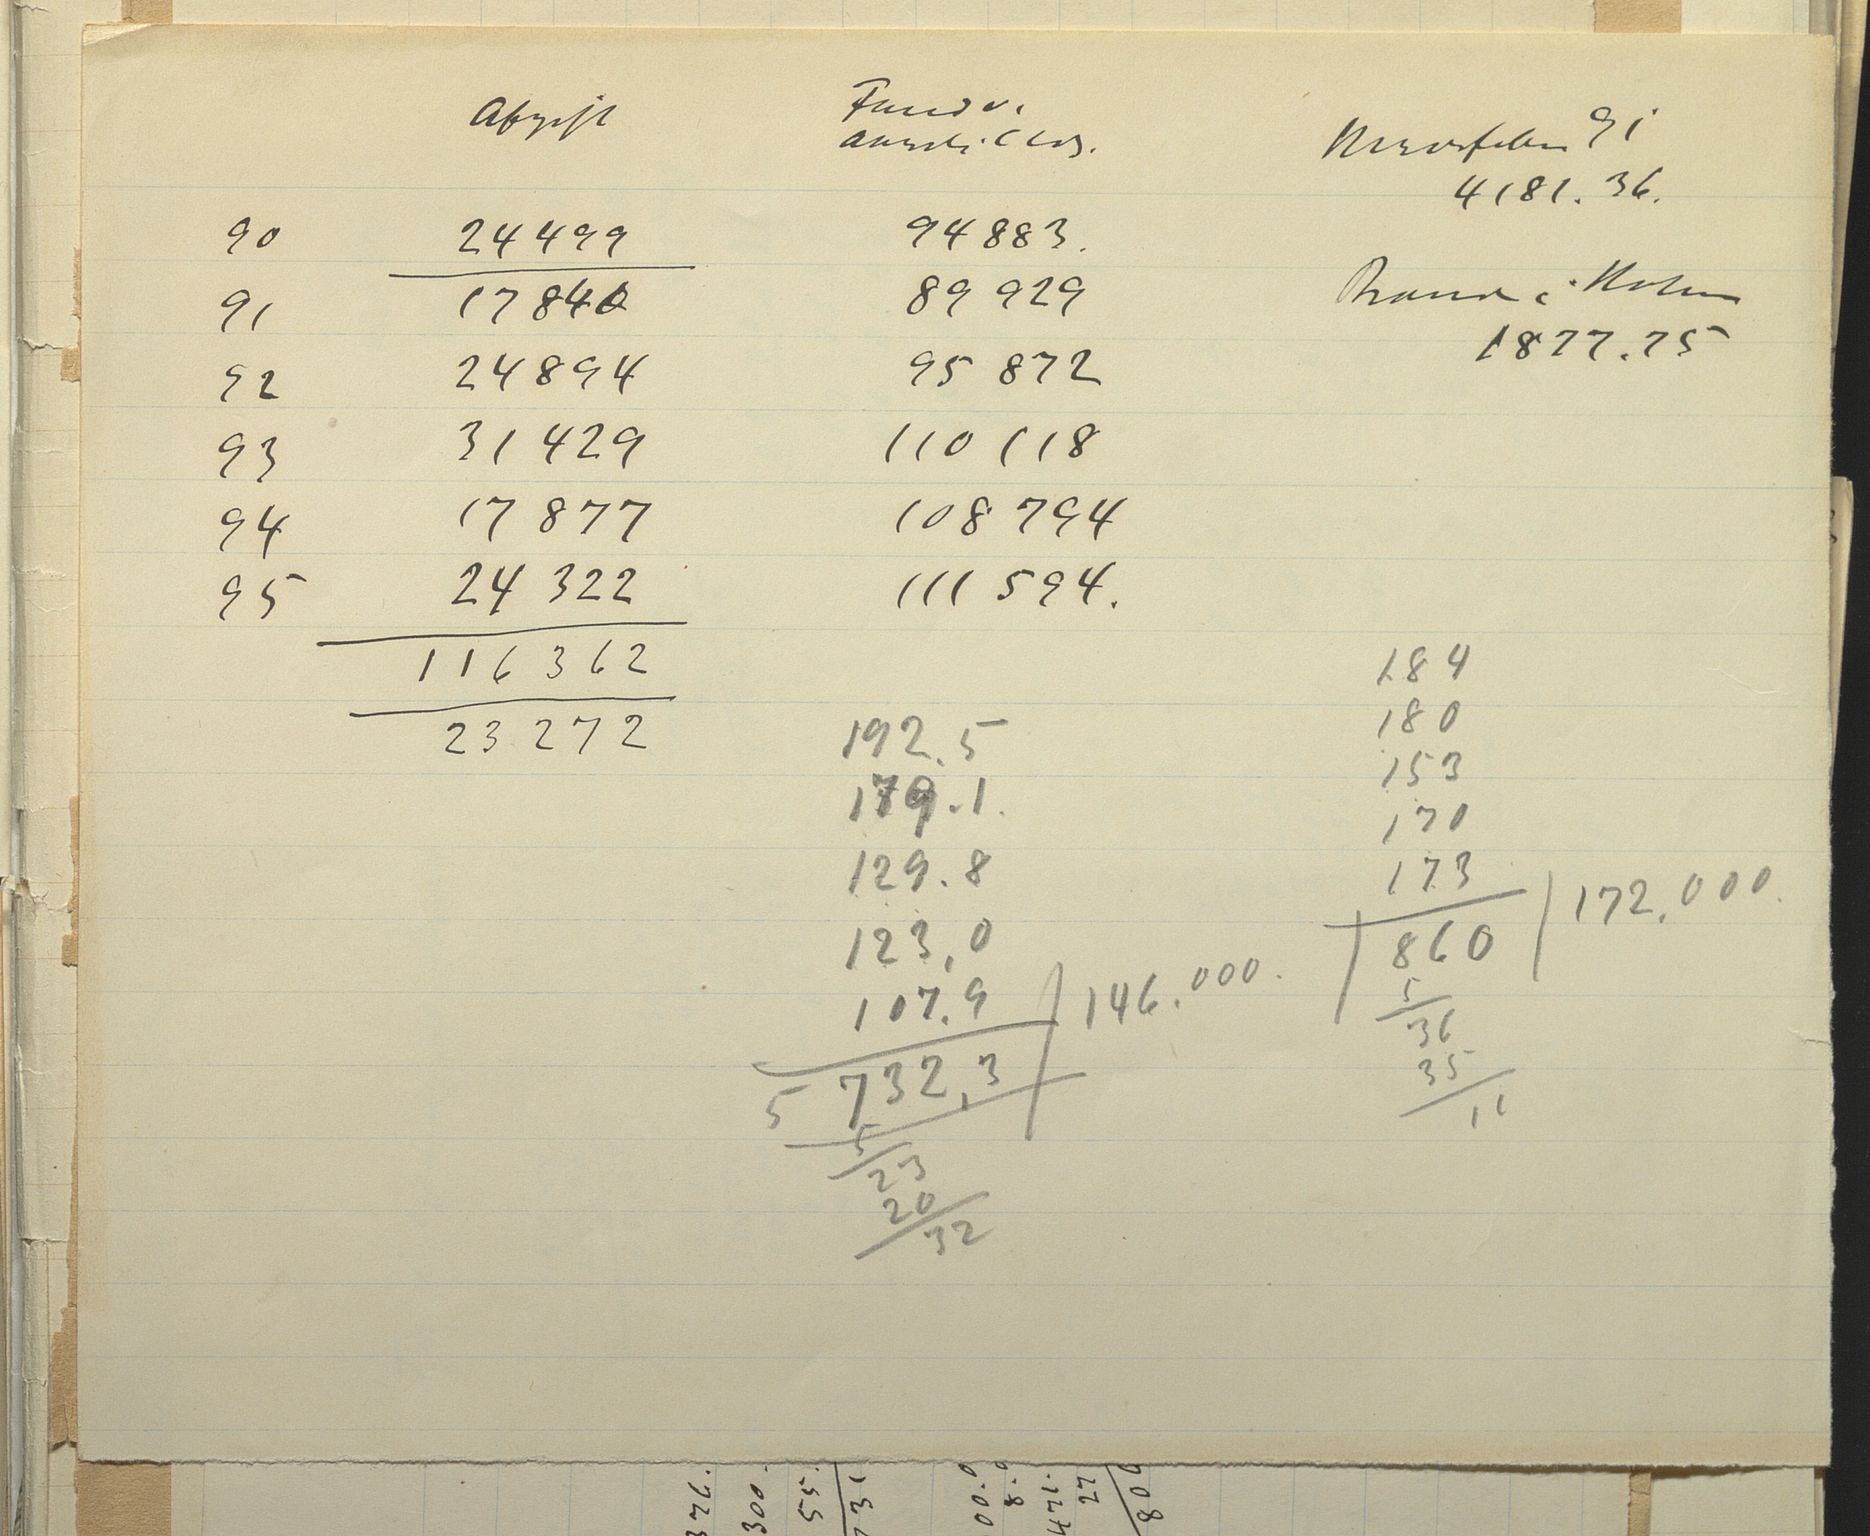 Afgift
90 24499 94883.
91 17840 89929
92 24894 95872
93 31429 110118
94 17877 108794
95 24322 111594.
116362
23272
91
4181.36.
1877.75
192.5
179.1.
129.8
123,0
107.9 146.000.
5 732,3
5
23
20
32
184
180
153
170
173 172,000.
860
5
36
35
11
376.
300.
55.
731
00.0
8.0
471.
27
806